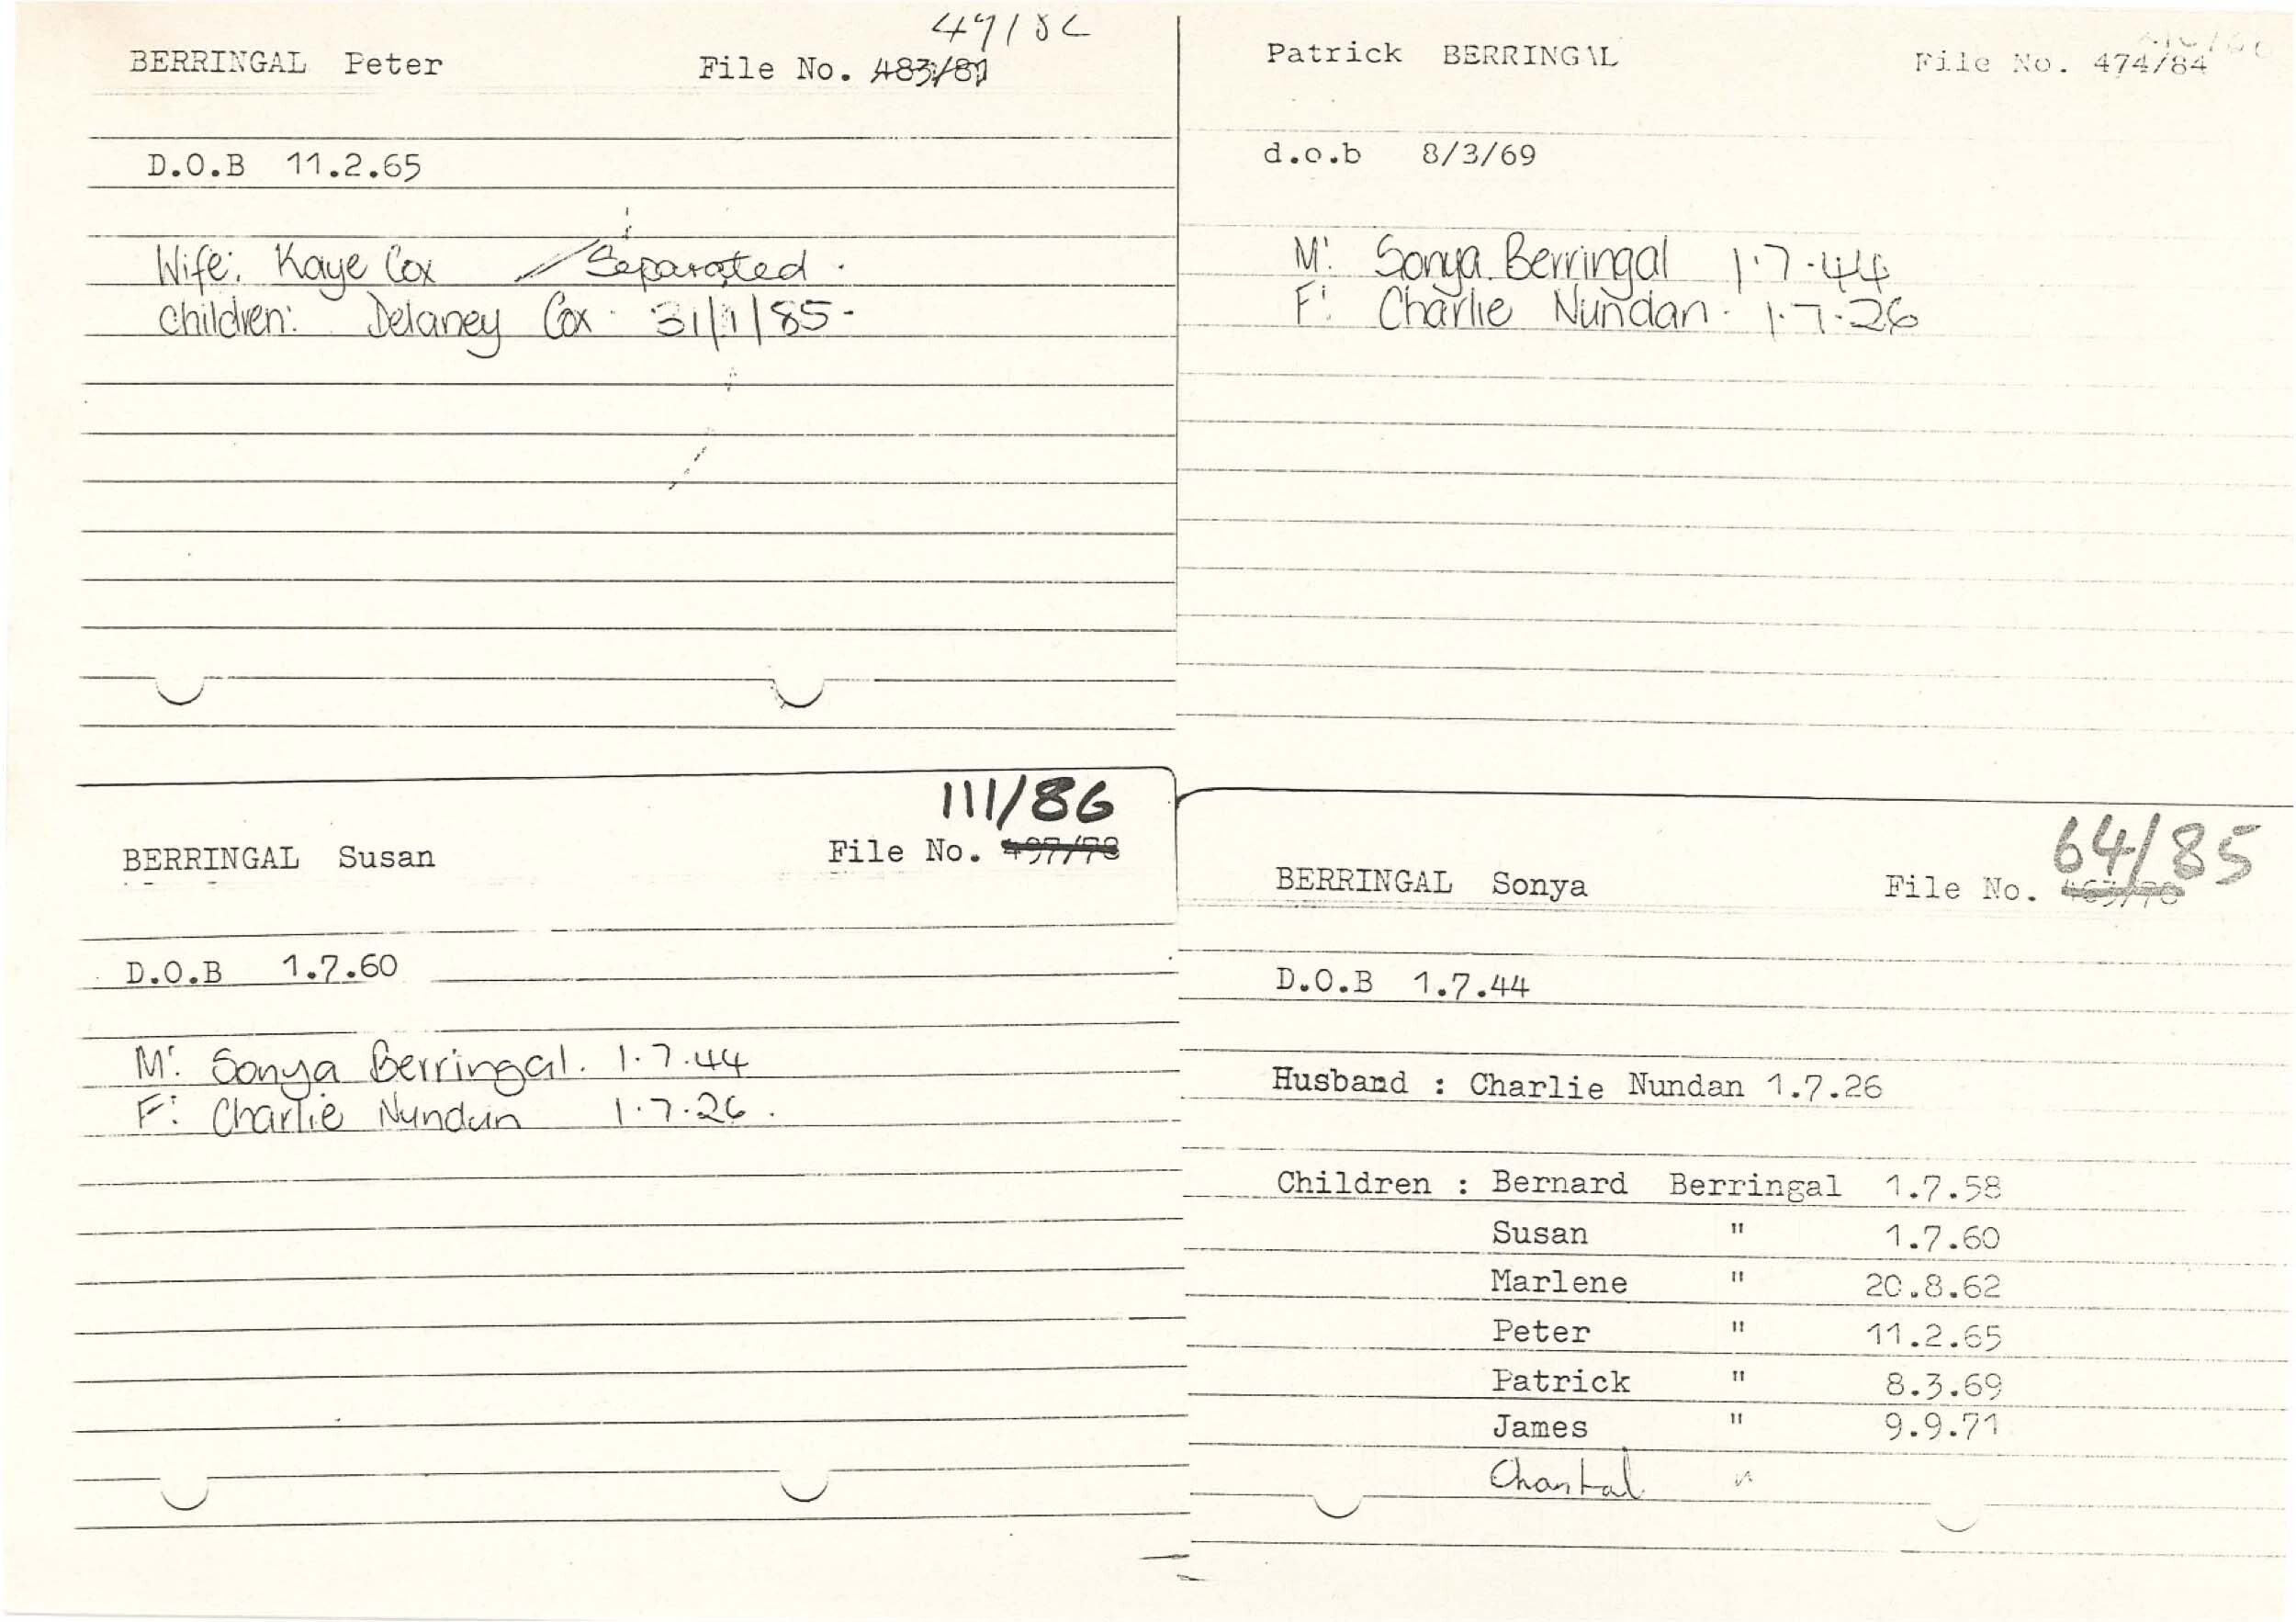 BERRINGAL Peter
File No. 483/81
D.O.B 11.2.65
Wife: Kaye Cox / Separated.
Children: Delaney Cox 31/1/85-
Patrick BERRINGAL
File No. 474/84
d.o.b 8/3/69
M: Sonya Berringal 1.7.44
F: Charlie Nundan. 1.7.26
111/86
BERRINGAL Susan
File No. 497/78
D.O.B 1.7.60
M: Sonya Berringal. 1.7.44
F: Charlie Nundan 1.7.26.
64/85
BERRINGAL Sonya
File No.
D.O.B 1.7.44
Husband : Charlie Nundan 1.7.26
Children : Bernard Berringal 1.7.58
Susan " 1.7.60
Marlene " 20.8.62
Peter " 11.2.65
Patrick " 8.3.69
James " 9.9.71
Chantal "